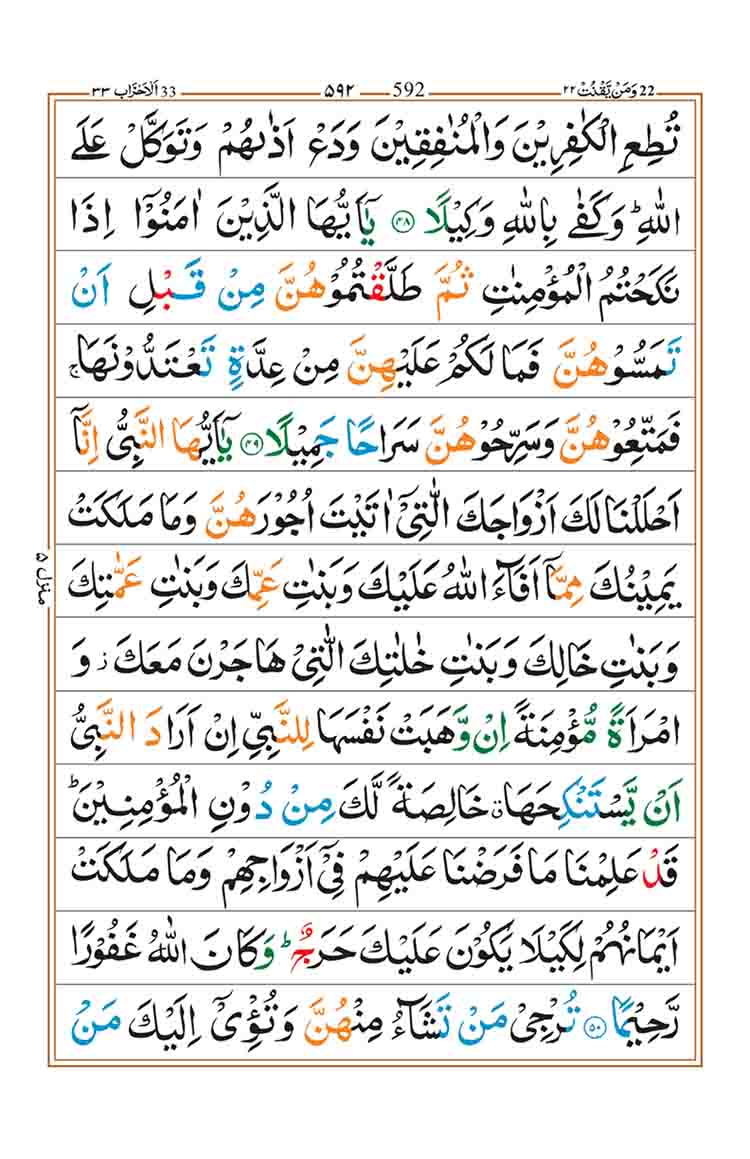 22 وَمَنْ يَّقْنُتْ ٢٢ 592 ۵۹۲ 33 اَلْاَحْزَاب ٣٣
تُطِعِ الْكٰفِرِيْنَ وَالْمُنٰفِقِيْنَ وَدَعْ اَذٰىهُمْ وَتَوَكَّلْ عَلَى
اللّٰهِ ؕ وَكَفٰى بِاللّٰهِ وَكِيْلًا ۴۸ يٰۤاَيُّهَا الَّذِيْنَ اٰمَنُوْۤا اِذَا
نَكَحْتُمُ الْمُؤْمِنٰتِ ثُمَّ طَلَّقْتُمُوْهُنَّ مِنْ قَبْلِ اَنْ
تَمَسُّوْهُنَّ فَمَا لَكُمْ عَلَيْهِنَّ مِنْ عِدَّةٍ تَعْتَدُّوْنَهَا ۚ
فَمَتِّعُوْهُنَّ وَسَرِّحُوْهُنَّ سَرَاحًا جَمِيْلًا ۴۹ يٰۤاَيُّهَا النَّبِىُّ اِنَّاۤ
اَحْلَلْنَا لَكَ اَزْوَاجَكَ الّٰتِىْۤ اٰتَيْتَ اُجُوْرَهُنَّ وَمَا مَلَكَتْ
يَمِيْنُكَ مِمَّاۤ اَفَآءَ اللّٰهُ عَلَيْكَ وَبَنٰتِ عَمِّكَ وَبَنٰتِ عَمّٰتِكَ
وَبَنٰتِ خَالِكَ وَبَنٰتِ خٰلٰتِكَ الّٰتِىْ هَاجَرْنَ مَعَكَ ز وَ
امْرَاَةً مُّؤْمِنَةً اِنْ وَّهَبَتْ نَفْسَهَا لِلنَّبِىِّ اِنْ اَرَادَ النَّبِىُّ
اَنْ يَّسْتَنْكِحَهَا ق خَالِصَةً لَّكَ مِنْ دُوْنِ الْمُؤْمِنِيْنَ ؕ
قَدْ عَلِمْنَا مَا فَرَضْنَا عَلَيْهِمْ فِىْۤ اَزْوَاجِهِمْ وَمَا مَلَكَتْ
اَيْمَانُهُمْ لِكَيْلَا يَكُوْنَ عَلَيْكَ حَرَجٌ ؕ وَكَانَ اللّٰهُ غَفُوْرًا
رَّحِيْمًا ۵۰ تُرْجِىْ مَنْ تَشَآءُ مِنْهُنَّ وَتُـْٔوِىْۤ اِلَيْكَ مَنْ
منزل ۵